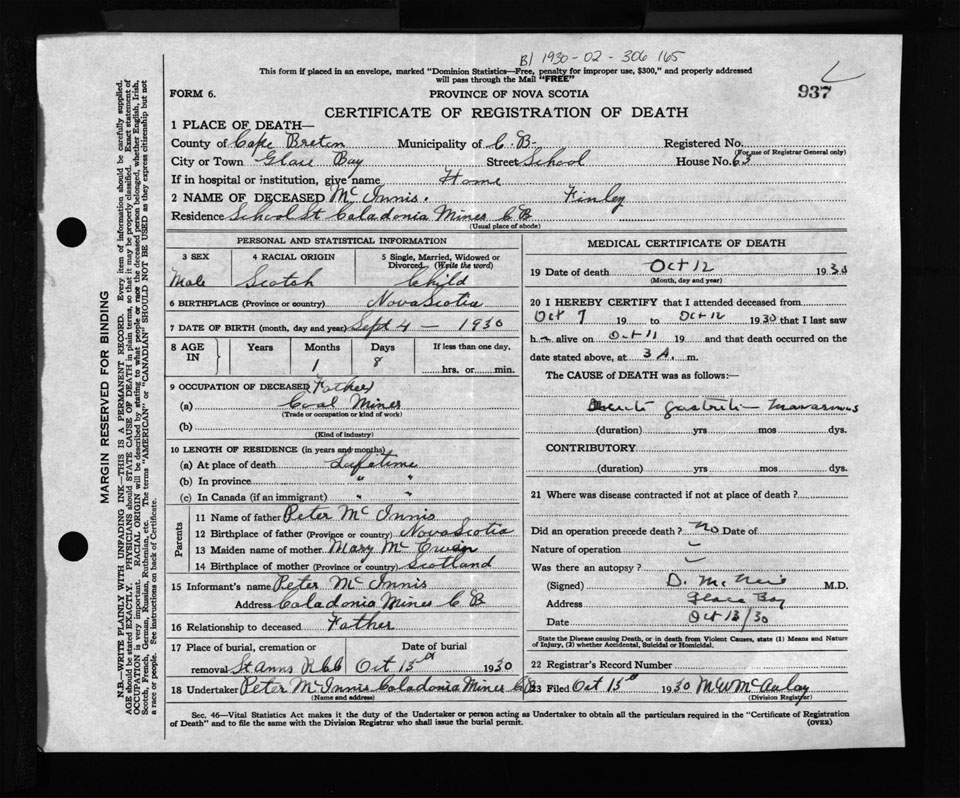 B1 1930-02-306 165
This form if placed in an envelope, marked "Dominion Statistics—Free, penalty for improper use, $300," and properly addressed
will pass through the Mail "FREE"
FORM 6.
PROVINCE OF NOVA SCOTIA
937
CERTIFICATE OF REGISTRATION OF DEATH
1 PLACE OF DEATH—
County of Cape Breton Municipality of C.B. Registered No.
(For use of Registrar General only)
City or Town Glace Bay Street School House No. 63
If in hospital or institution, give name Home
2 NAME OF DECEASED McInnis. Finley
Residence School St Caladonia Mines C B
(Usual place of abode)
PERSONAL AND STATISTICAL INFORMATION
3 SEX 4 RACIAL ORIGIN 5 Single, Married, Widowed or Divorced. (Write the word)
Male Scotch Child
6 BIRTHPLACE (Province or country) Nova Scotia
7 DATE OF BIRTH (month, day and year) Sept 4 — 1930
8 AGE IN Years Months Days If less than one day.
1 8 hrs. or min.
9 OCCUPATION OF DECEASED (Father)
(a) Coal Miner
(Trade or occupation or kind of work)
(b)
(Kind of industry)
10 LENGTH OF RESIDENCE (in years and months)
(a) At place of death Lifetime
(b) In province " "
(c) In Canada (if an immigrant) " "
Parents
11 Name of father Peter McInnis
12 Birthplace of father (Province or country) Nova Scotia
13 Maiden name of mother Mary McEwen
14 Birthplace of mother (Province or country) Scotland
15 Informant's name Peter McInnis
Address Caladonia Mines C B
16 Relationship to deceased Father
17 Place of burial, cremation or Date of burial
removal St Anns Oct 13th 1930
18 Undertaker Peter McInnis Caladonia Mines C B
(Name and address)
MEDICAL CERTIFICATE OF DEATH
19 Date of death Oct 12 1930
(Month, day and year)
20 I HEREBY CERTIFY that I attended deceased from
Oct 7 19 to Oct 12 1930 that I last saw
h alive on Oct 11 19 and that death occurred on the
date stated above, at 3 A. m.
The CAUSE of DEATH was as follows:—
Acute gastritis — marasmus
(duration) yrs mos dys.
CONTRIBUTORY
(duration) yrs mos dys.
21 Where was disease contracted if not at place of death?
Did an operation precede death? No Date of
Nature of operation
Was there an autopsy?
(Signed) D. McNeil M.D.
Address Glace Bay
Date Oct 13/30
State the Disease causing Death, or in death from Violent Causes, state (1) Means and Nature
of Injury, (2) whether Accidental, Suicidal or Homicidal.
22 Registrar's Record Number
23 Filed Oct 13th 1930 M W McAulay
(Division Registrar)
Sec. 46—Vital Statistics Act makes it the duty of the Undertaker or person acting as Undertaker to obtain all the particulars required in the "Certificate of Registration
of Death" and to file the same with the Division Registrar who shall issue the burial permit. (OVER)
MARGIN RESERVED FOR BINDING
N.B.—WRITE PLAINLY WITH UNFADING INK—THIS IS A PERMANENT RECORD. Every item of information should be carefully supplied.
AGE should be stated EXACTLY. PHYSICIANS should STATE CAUSE OF DEATH in plain terms, so that it may be properly classified. Exact statement of
OCCUPATION is very important. RACIAL ORIGIN will be described by stating to what people or race the deceased person belonged, whether English, Irish,
Scotch, French, German, Russian, Ruthenian, etc. The terms "AMERICAN" or "CANADIAN" SHOULD NOT BE USED as they express citizenship but not
a race or people. See instructions on back of Certificate.